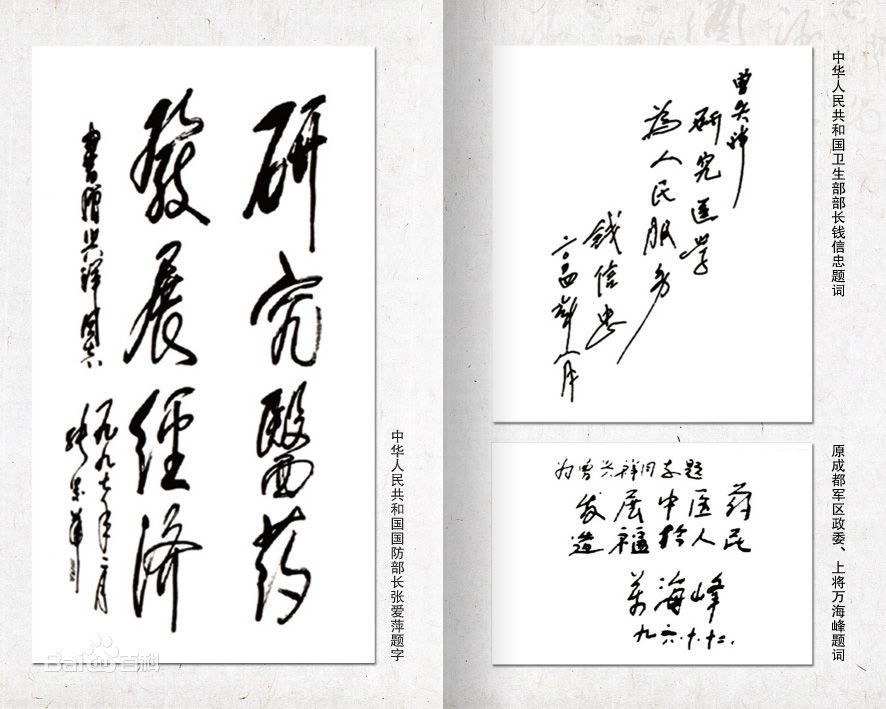 研究醫药
發展經济
書贈兴祥同志
一九九七年二月
张爱萍
中华人民共和国国防部长张爱萍题字
曾兴祥
研究医学
为人民服务
钱信忠
二〇〇四年八月
中华人民共和国卫生部部长钱信忠题词
为曾兴祥同志题
发展中医药
造福于人民
万海峰
九六.十.十二.
原成都军区政委、上将万海峰题词
Bai百科